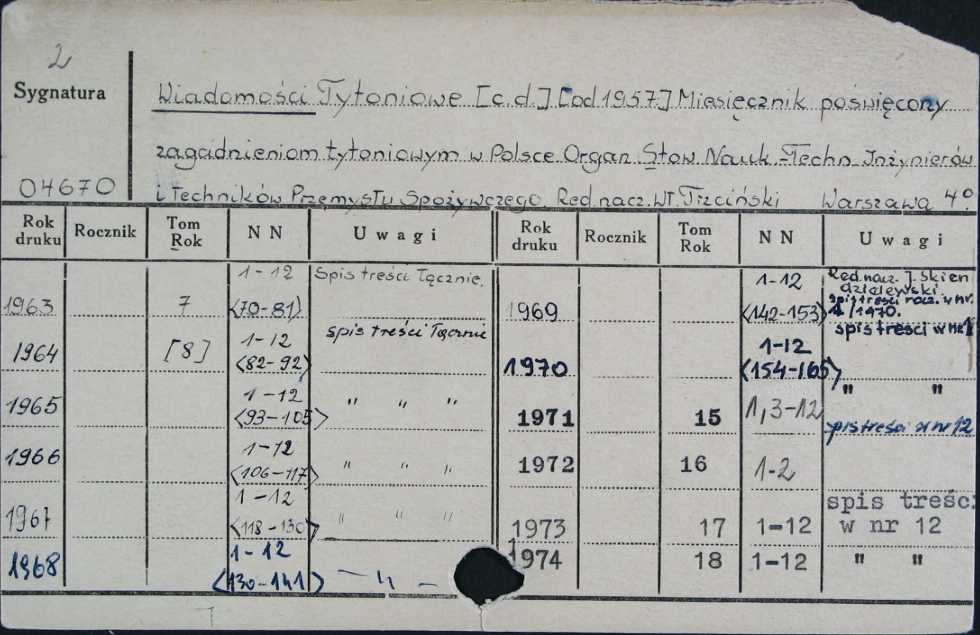 2
Sygnatura
04670
Wiadomości Tytoniowe [c.d.] [od 1957] Miesięcznik poświęcony
zagadnieniom tytoniowym w Polsce. Organ Stow. Nauk.-Techn. Inżynierów
i Techników Przemysłu Spożywczego. Red. nacz. Wł. Trzciński Warszawa 4º
Rok druku Rocznik Tom Rok NN Uwagi Rok druku Rocznik Tom Rok NN Uwagi
1963 7 1-12 <70-81> Spis treści łącznie.
1964 [8] 1-12 <82-92> spis treści łącznie
1965 1-12 <93-105> " " "
1966 1-12 <106-117> " " "
1967 1-12 <118-130> " " "
1968 1-12 <130-141> — " —
1969 1-12 <142-153> Red. nacz. J. Skien dzielewski spis treści rocz. w nr. 1/1970.
1970 1-12 <154-165> spis treści w nr 1
" "
1971 15 1,3-12 spis treści w nr 12
1972 16 1-2
1973 17 1-12 spis treści w nr 12
1974 18 1-12 " "